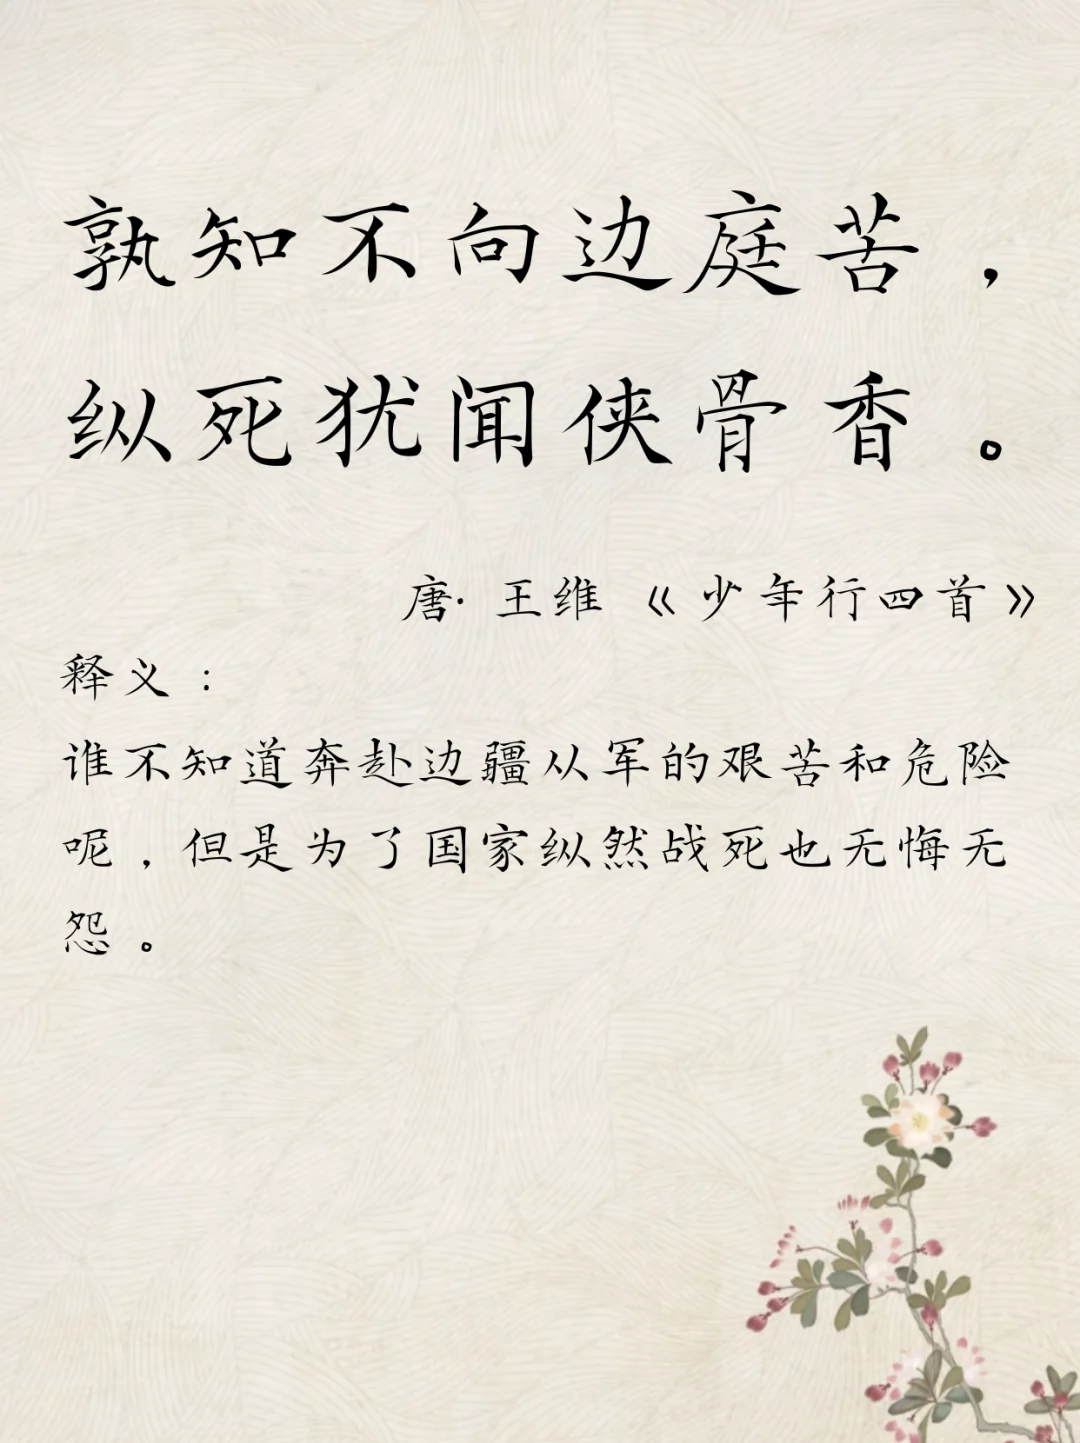 孰知不向边庭苦，
纵死犹闻侠骨香。
唐·王维《少年行四首》
释义：
谁不知道奔赴边疆从军的艰苦和危险
呢，但是为了国家纵然战死也无悔无
怨。